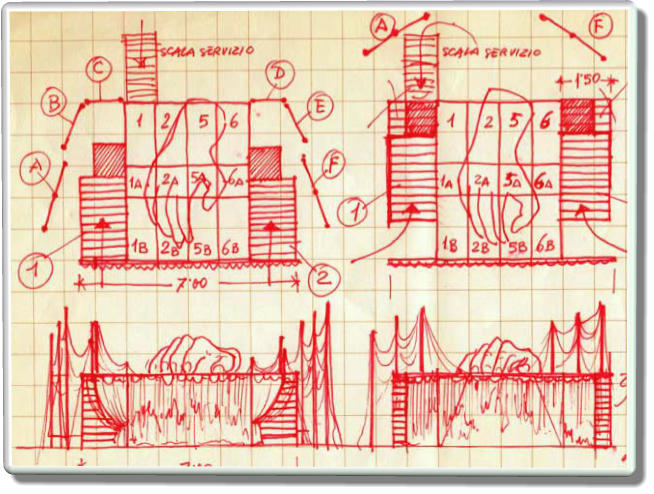 SCALA SERVIZIO
C
D
B
E
A
F
1 2 5 6
1A 2A 5A 6A
1B 2B 5B 6B
1
2
7.00
A
F
SCALA SERVIZIO
1'50
1 2 5 6
1A 2A 5A 6A
1
1B 2B 5B 6B